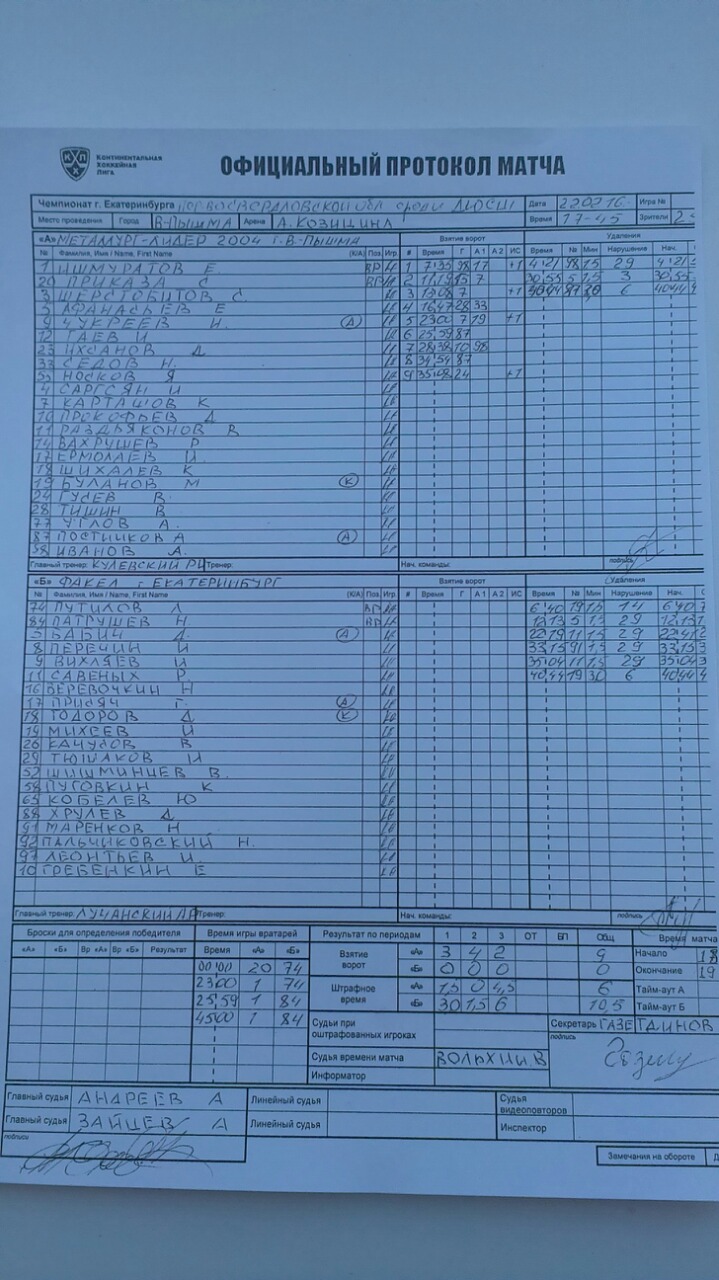 КОНТИНЕНТАЛЬНАЯ
ХОККЕЙНАЯ
ЛИГА
ОФИЦИАЛЬНЫЙ ПРОТОКОЛ МАТЧА
Чемпионат г. Екатеринбурга Дата 220216 Игра №
Место проведения Город В-ПЫШМА Арена А.КОЗИЦИНА Время 17-45 Зрители
«А» МЕТАЛЛУРГ-ЛИДЕР 2004 г.В-ПЫШМА Взятие ворот Удаления
№ Фамилия, Имя / Name, First Name (К/А) Поз. Игр. # Время Г А1 А2 ИС Время № Мин Нарушение Нач.
1 ИШМУРАТОВ Е. ВР 1 7:35 98 17 +1 4:21 98 1,5 29 4:21
20 ПРИКАЗА С ВР 2 7 30:55 5 1,5 3 30:55
3 ШЕРСТОБИТОВ С. 3 7 +1 40:44 87 30 6 40:44
5 АФАНАСЬЕВ Е 4 16:47 28 33
9 ЧУКРЕЕВ И. А 5 23:00 7 19 +1
12 ГАЕВ И 6 25:59 87
23 ИХСАНОВ Д 7 28:38 10 98
33 СЕДОВ Н. 8 34:54 87
53 НОСКОВ Я 9 35:08 24 +1
4 САРГСЯН И
7 КАРТАШОВ К
10 ПРОКОФЬЕВ Д
11 РАЗДЬЯКОНОВ В
14 ВАХРУШЕВ Р
17 ЕРМОЛАЕВ И.
18 ШИХАЛЕВ К
19 БУЛАНОВ М К
24 ГУСЕВ В.
28 ТИШИН В
77 УГЛОВ А.
87 ПОСТНИКОВ А А
98 ИВАНОВ А.
Главный тренер: КУЛЕВСКИЙ РЦ Тренер: Нач. команды: подпись
«Б» ФАКЕЛ г ЕКАТЕРИНБУРГ Взятие ворот Удаления
№ Фамилия, Имя / Name, First Name (К/А) Поз. Игр. # Время Г А1 А2 ИС Время № Мин Нарушение Нач.
74 ПУТИЛОВ Л ВР 6:40 19 1,5 14 6:40
84 ПАТРУШЕВ Н ВР 12:13 5 1,5 29 12:13
5 БАБИЧ Д. А 22:19 11 1,5 29
8 ПЕРЕЧИН И 33:15 91 1,5 29 33:15
9 ВИХЛЯЕВ И 35:04 11 1,5 29 35:04
11 САВЕНЫХ Р. 40:44 19 30 6 40:44
16 ВЕРЕВОЧКИН Н
17 Г. А
18 ТОДОРОВ Д К
19 МИХЕЕВ И
26 КАЧУСОВ В
29 ТЮШЛАКОВ И
52 ШИШМИНЦЕВ В.
58 ПУГОВКИН К
65 КОБЕЛЕВ Ю
88 ХРУЛЕВ Д
91 МАРЕНКОВ Н
92 ПАЛЬЧИКОВСКИЙ Н.
97 ЛЕОНТЬЕВ И.
10 ГРЕБЕНКИН Е
Главный тренер: ЛУЧАНСКИЙ Тренер: Нач. команды: подпись
Броски для определения победителя Время игры вратарей Результат по периодам 1 2 3 ОТ БП Общ Время матча
«А» «Б» Вр «А» Вр «Б» Результат Время «А» «Б» Взятие ворот «А» 3 4 2 9 Начало 18
00:00 20 74 «Б» 0 0 0 0 Окончание 19
23:00 1 74 Штрафное время «А» 1,5 0 4,5 6 Тайм-аут А
25:59 1 84 «Б» 30 1,5 6 10,5 Тайм-аут Б
45:00 1 84 Судьи при оштрафованных игроках Секретарь ГАЗЕТДИНОВ
подпись
Судья времени матча ВОЛЬХИН В
Информатор
Главный судья АНДРЕЕВ А Линейный судья Судья видеоповторов
Главный судья ЗАЙЦЕВ А Линейный судья Инспектор
подпись
Замечания на обороте